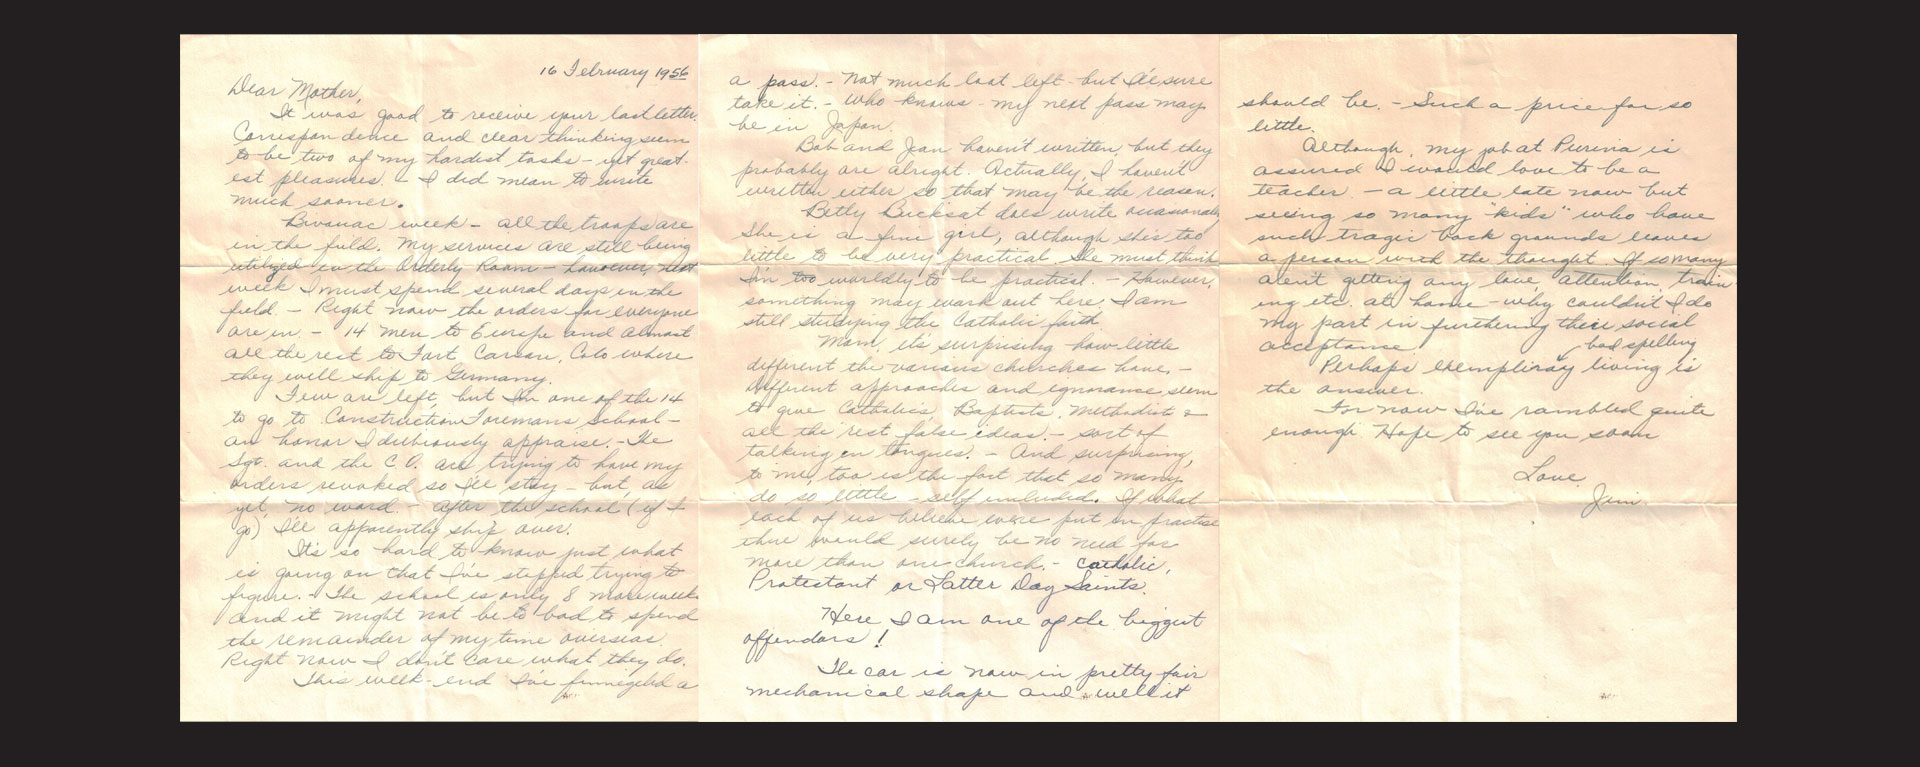 16 February 1956
Dear Mother,
It was good to receive your last letter.
Correspondence and clear thinking seem
to be two of my hardest tasks - yet great-
est pleasures. - I did mean to write
much sooner.
Bivouac week - all the troops are
in the field. My services are still being
utilized in the Orderly Room - however, next
week I must spend several days in the
field. - Right now the orders for everyone
are in. - 14 men to Europe and almost
all the rest to Fort Carson, Colo where
they will ship to Germany.
Few are left, but I'm one of the 14
to go to Construction Foremans School -
an honor I dubiously appraise. - The
Sgt. and the C.O. are trying to have my
orders revoked so I'll stay - but, as
yet, no word. - After the school (if I
go) I'll apparently ship over.
It's so hard to know just what
is going on that I've stopped trying to
figure. - The school is only 8 more weeks
and it might not be to bad to spend
the remainder of my time overseas.
Right now I don't care what they do.
This week-end I've finnegeled a
a pass. - Not much loot left but I'll sure
take it. - Who knows - my next pass may
be in Japan.
Bob and Jean haven't written, but they
probably are alright. Actually, I haven't
written either so that may be the reason.
Betty Bucksat does write occasionally
She is a fine girl, although she's too
little to be very practical. She must think
I'm too worldly to be practical. - However,
something may work out here. I am
still studying the Catholic faith
Mom, it's surprising how little
different the various churches have. -
Different approaches and ignorance seem
to give Catholics, Baptists, Methodist &
all the rest false ideas. - sort of
talking in tongues. - And surprising,
to me, too is the fact that so many
do so little - self included. If what
each of us believe were put in practise
there would surely be no need for
more than one church. - Catholic,
Protestant or Latter Day Saints.
Here I am one of the biggest
offendors!
The car is now in pretty fair
mechanical shape and well it
should be. - Such a price for so
little.
Although, my job at Purina is
assured I would love to be a
teacher - a little late now but
seeing so many "kids" who have
such tragic back grounds leaves
a person with the thought. If so many
aren't getting any love, attention, train-
ing etc. at home - why couldn't I do
my part in furthering their social
acceptance
bad spelling
Perhaps exempliray living is
the answer.
For now I've rambled quite
enough. Hope to see you soon
Love
Jim